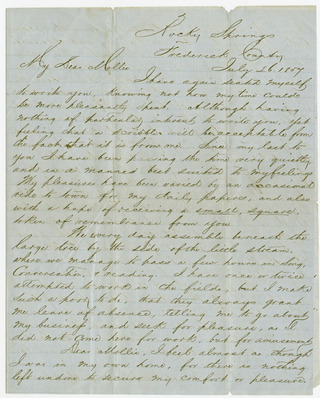 Rocky Springs
Frederick County
July 26. 1857
My Dear Mollie
I have again seated myself
to write you, knowing not how my time could
be more pleasantly spent. Although having
nothing of particular interest to write you, yet
feeling that a scribble will be acceptable from
the fact that it is from me. Since my last to
you I have been passing the time very quietly
and in a manner best suited to my feelings
My pleasures have been varied by an occasional
ride to town for my daily papers, and also
with a hope of receiving a small, square,
token of remembrance from you
We every day assemble beneath the
large tree by the side of the little stream,
where we manage to pass a few hours in song,
conversation, & reading. I have once or twice
attempted to work in the fields, but I make
such a poor to do, that they always grant
me leave of absence, telling me to go about
my business and seek for pleasure, as I
did not come here for work, but for amusement
Dear Mollie, I feel almost as though
I was in my own home, for there is nothing
left undone to secure my comfort or pleasure